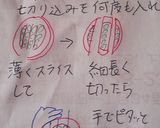 切り込みを何度も入れ
→
薄くスライス
して
細長く
切ったら
手でピタッと